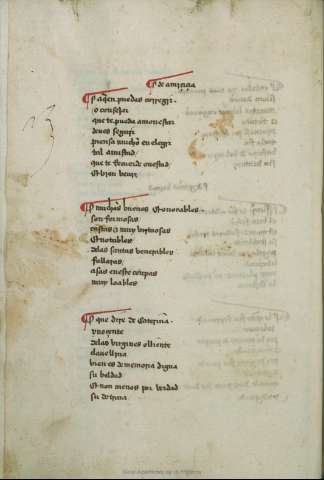 de amicicia
a quien puedas corregir
o consejar
que te pueda amonestar
deues seguir
piensa mucho en elegir
tal amistad
que te recuerde onestad
& bien beuir
muchas buenas & onorables
son fermosas
castas & muy virtuosas
& notables
delas santas venerables
fallaras
asas en este conpas
muy loables
que dire de Caterina
ynoçente
delas virgines olliente
clauellina
bien es de memoria digna
su beldad
& non menos por verdad
su dotrina